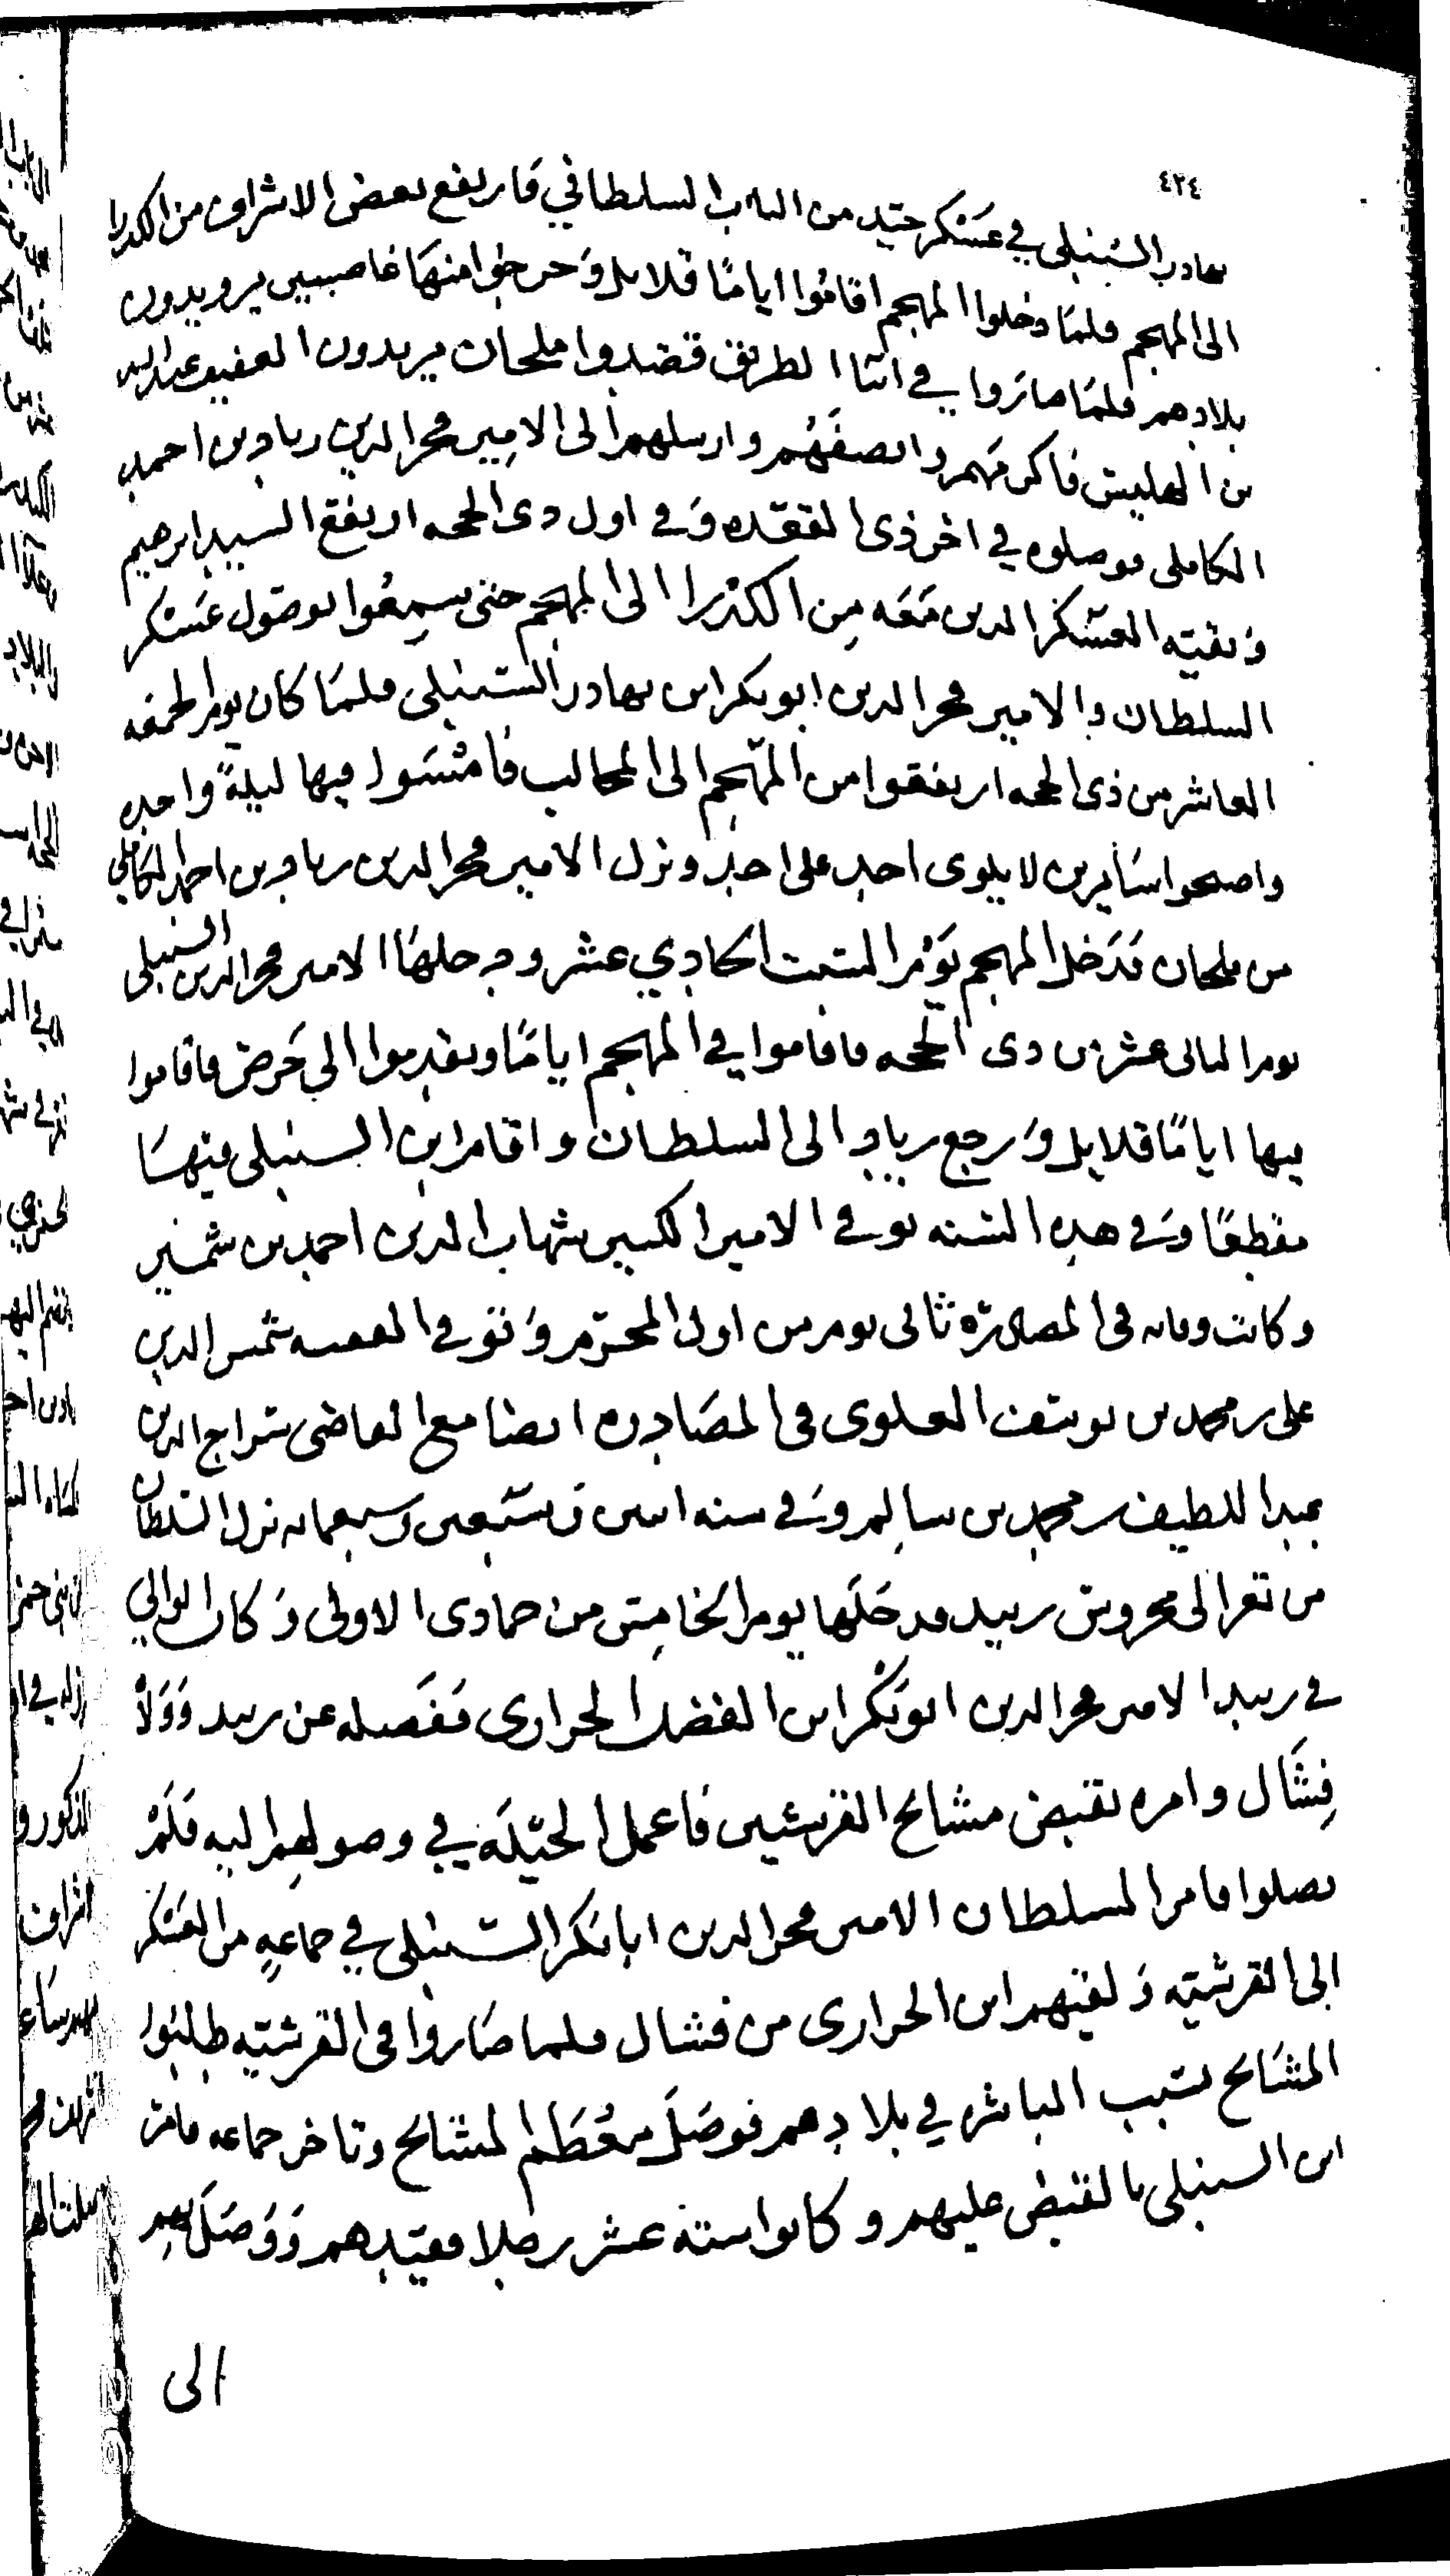 ٤٣٤
بهادر السنبلى في عسكر جيّد من الباب السلطاني فارتفع بعض الاشراف من الكدرا
الى المهجم فلمّا دخلوا المهجم اقامُوا ايامًا قلايل وَخرجُوا منهَا غاصبين يريدون
بلادهم فلمّا صارَوا في اثنا الطريق قصَدوا ملحان يريدون العفيف عبدالله
بن الهليس فاكرمَهم وانصفَهُم وارسلهم الى الامِير فخر الدين زياد بن احمد
الكاملى فوصلوه في اخر ذى القعَده وَفى اول ذى الحجه ارتفع السيد ابرهيم
وَبقيّه العسَكر الدين مَعَه مِن الكدْرا الى المهجم حتى سمِعُوا بوصَول عسَكر
السلطان والامير فخر الدين ابو بكر ابن بهادر السنبلى فلمّا كان يوم الجمعه
العاشر من ذى الحجه ارتفعوا من المهجم الى المحالب فامْسَوا فيها ليلةً واحده
واصبحوا سَايرين لا يلوى احد على احد ونزل الامير فخر الدين زياد بن احمد الكاملى
من ملحان فدَخل المهجم يَوْم السَبت الحادي عشر ودخلهَا الامير فخر الدين السنبلى
يوم الثانى عشر من ذى الحجه فاقاموا في المهجم ايامًا وتقدموا الى حَرض فاقاموا
فيها ايامًا قلايل وَرجع زياد الى السلطان واقام ابن السنبلى فيهَا
مقطعًا وَفى هذه السَنه توفى الامير الكبير شهاب الدين احمد بن سمير
وكانت وفاته فى المصادرَه ثانى يوم من اول المحرّم وَتوفى الفقيه شمس الدين
على بن محمد بن يوسَف العلوى فى المصَادره ايضا مع القاضى سَراج الدين
عبد اللطيف بن محمد بن سالِم وَفى سنه اثنين وسَبعين وسبعمائه نزل السَلطان
من تعز الى محروس زبيد فدخَلَها يوم الخامِس من جمادى الاولى وَكان الوالي
في زبيد الامير فخر الدين ابوبَكْر ابن الفضل الحرارى فَفَصَله عن زبيد وَوَلاهْ
فِشَال وامره بقبض مشايخ القرشيين فاعمل الحَيْلَه في وصولهِم اليه فلَمْ
يصلوا فامر السلطان الامير فخر الدين ابابَكر السَنبلى في جماعهٍ من العَسْكر
الى القرشيّه وَلقيهم ابن الحرارى من فشال فلما صَاروا فى القرشيّه طلبُوا
المشَايخ بسَبب المباشره في بلادهم فوصَلَ مُعظَم المشايخ وتاخر جماعه فامرَ
ابن السنبلى بالقبض عليهم وكانوا ستة عشر رجلا فقيّدهم وَوَصَلَ بِهِم
الى